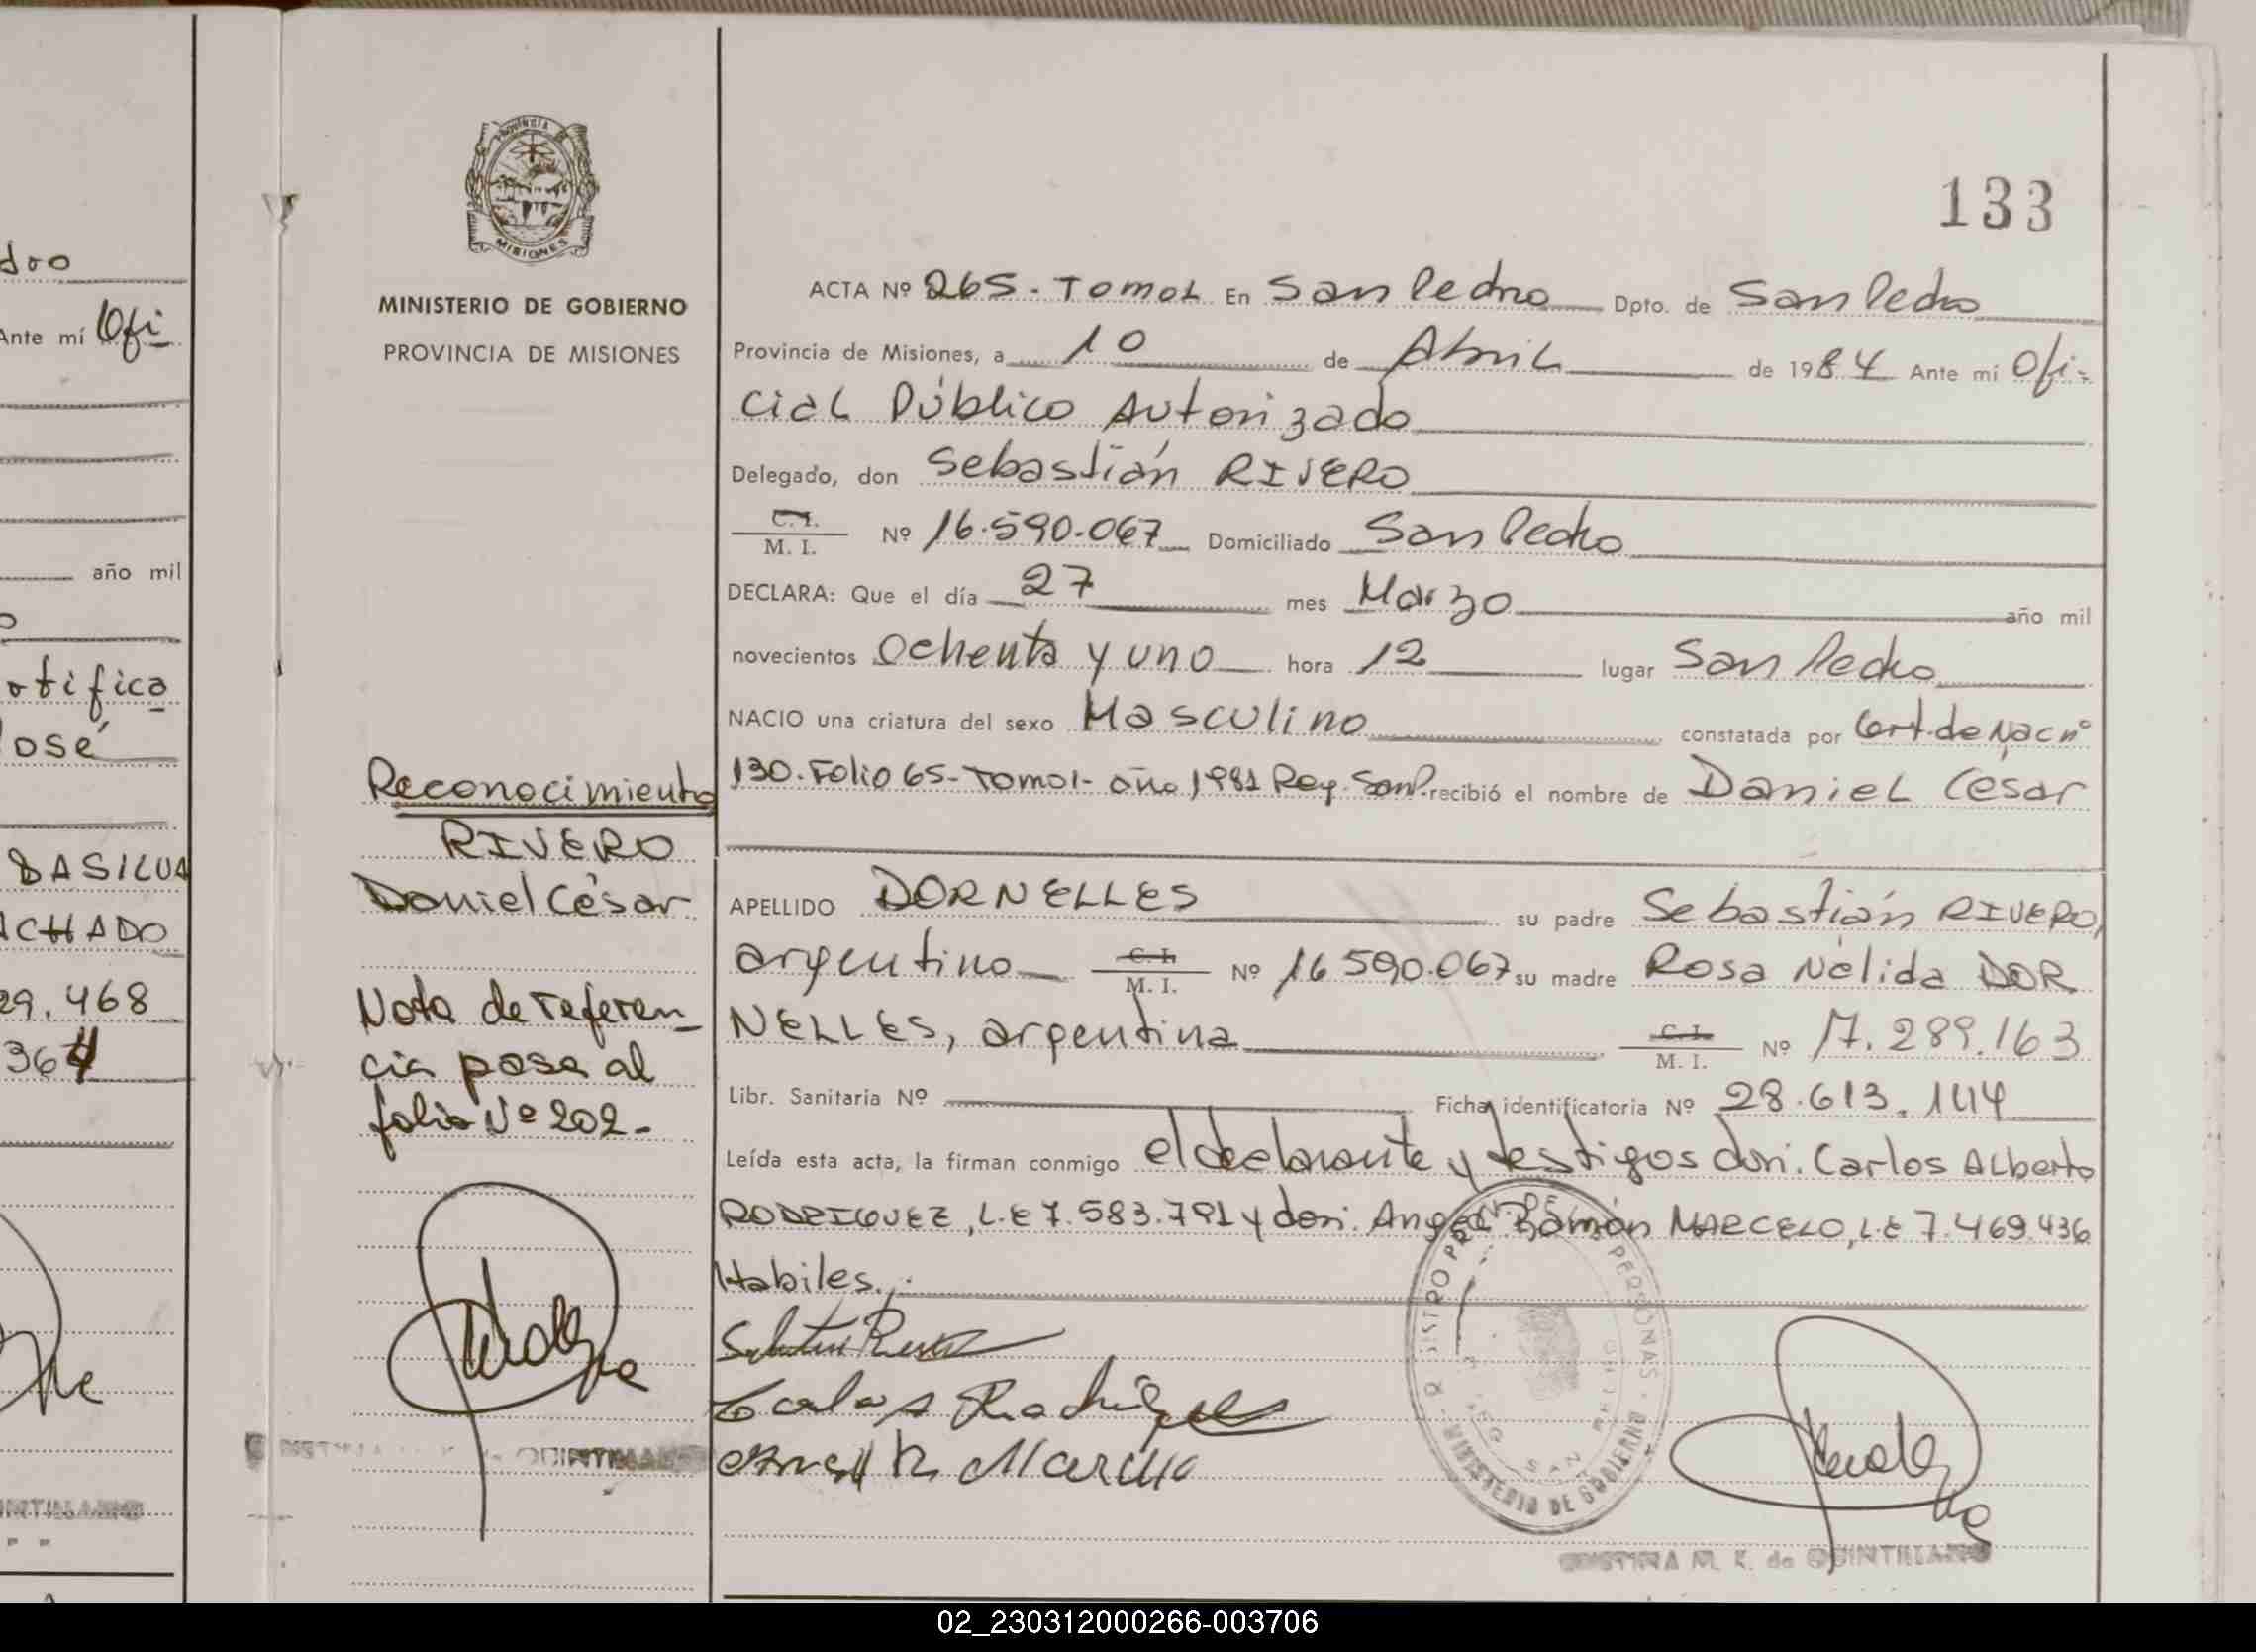 dro
Ante mí Ofi
año mil
o
rtifica
José
BASILUA
ACHADO
29.468
364
PROVINCIA DE
MISIONES
MINISTERIO DE GOBIERNO
PROVINCIA DE MISIONES
Reconocimiento
RIVERO
Daniel César
Nota de referen-
cia pasa al
folio Nº 202-
QUINTILLANO
133
ACTA Nº 265 - Tomo I En San Pedro Dpto. de San Pedro
Provincia de Misiones, a 10 de Abril de 1984 Ante mí Ofi-
cial Público Autorizado
Delegado, don Sebastián RIVERO
C.I.
M. I. Nº 16.590.067 Domiciliado San Pedro
DECLARA: Que el día 27 mes Marzo año mil
novecientos ochenta y uno hora 12 lugar San Pedro
NACIO una criatura del sexo Masculino constatada por Cert. de Nac nº
130. Folio 65 - Tomo I - año 1981 Reg. San P. recibió el nombre de Daniel César
APELLIDO DORNELLES su padre Sebastián RIVERO,
argentino C.I. M. I. Nº 16.590.067 su madre Rosa Nélida DOR
NELLES, argentina C.I. M. I. Nº 17.289.163
Libr. Sanitaria Nº Ficha identificatoria Nº 28.613.144
Leída esta acta, la firman conmigo el declarante y testigos don. Carlos Alberto
RODRIGUEZ, L.E 7.583.791 y don. Angel Ramón MARCELO, L.E 7.469.436
Habiles.
Carlos A Rodríguez
MINISTERIO DE GOBIERNO
CRISTINA M. K. de QUINTILLANO
02_230312000266-003706